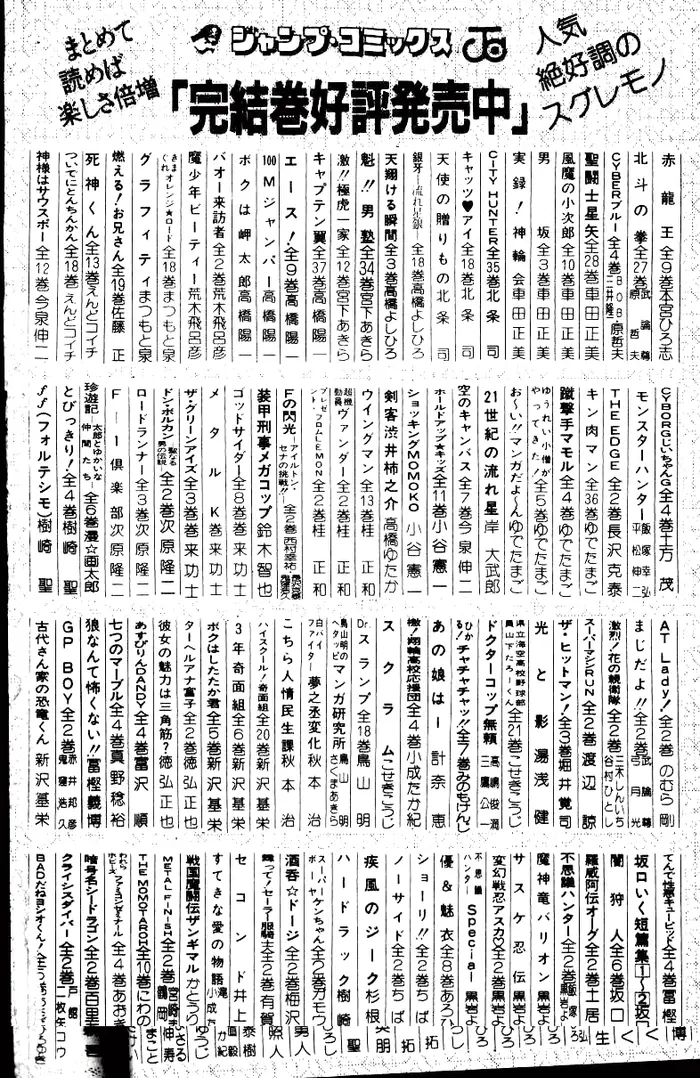 まとめて
読めば
楽しさ倍増
ジャンプ・コミックス
人気
絶好調の
スグレモノ
「完結巻好評発売中」
赤龍王 全9巻 本宮ひろ志
北斗の拳 全27巻 武論尊 原哲夫
CYBERブルー 全4巻 三井隆一 BOB 原哲夫
聖闘士星矢 全28巻 車田正美
風魔の小次郎 全10巻 車田正美
男坂 全3巻 車田正美
実録!神輪会 車田正美
CITY HUNTER 全35巻 北条司
キャッツ♥アイ 全18巻 北条司
天使の贈りもの 北条司
銀牙―流れ星 銀― 全18巻 高橋よしひろ
天翔ける瞬間 全3巻 高橋よしひろ
魁!!男塾 全34巻 宮下あきら
激!!極虎一家 全12巻 宮下あきら
キャプテン翼 全37巻 高橋陽一
エース! 全9巻 高橋陽一
100Mジャンパー 高橋陽一
ボクは岬太郎 高橋陽一
バオー来訪者 全2巻 荒木飛呂彦
魔少年ビーティー 荒木飛呂彦
きまぐれオレンジ★ロード 全18巻 まつもと泉
グラフィティ まつもと泉
燃える!お兄さん 全19巻 佐藤正
死神くん 全13巻 えんどコイチ
ついでにとんちんかん 全18巻 えんどコイチ
神様はサウスポー 全12巻 今泉伸二
CYBORGじいちゃんG 全4巻 土方茂
モンスターハンター 飯塚幸弘 平松伸二
THE EDGE 全2巻 長沢克泰
キン肉マン 全36巻 ゆでたまご
蹴撃手マモル 全4巻 ゆでたまご
ゆうれい小僧がやってきた! 全5巻 ゆでたまご
お〜い!マンガだよ〜ん ゆでたまご
21世紀の流れ星 岸大武郎
空のキャンバス 全7巻 今泉伸二
ホールドアップ★キッズ 全11巻 小谷憲一
ショッキングMOMOKO 小谷憲一
剣客渋井柿之介 高橋ゆたか
ウイングマン 全13巻 桂正和
超機動員ヴァンダー 全2巻 桂正和
プレゼント・フロムLEMON 全2巻 桂正和
Fの閃光 アイルトン・セナの挑戦!! 全2巻 西村幸祐
装甲刑事メガコップ 鈴木智也
ゴッドサイダー 全8巻 巻来功士
メタルK 巻来功士
ザ・グリーンアイズ 全3巻 巻来功士
ドン・ボルカン 聖なる男の伝説 全2巻 次原隆二
ロードランナー 全3巻 次原隆二
F―1倶楽部 次原隆二
珍遊記 太郎とゆかいな仲間たち 全6巻 漫☆画太郎
とびっきり! 全4巻 樹崎聖
ff(フォルテシモ) 樹崎聖
AT Lady! 全2巻 のむら剛
まじだよ!! 全2巻 武論尊 弓月光
激烈!花の親衛隊 全2巻 三木しんいち 谷村ひとし
スーパーマシンRUN 全2巻 渡辺諒
ザ・ヒットマン! 全3巻 堀井覚司
光と影 湯浅健
県立海空高校野球部員山下たろーくん 全21巻 こせきこうじ
ドクターコップ無頼 高嶋俊潤 三鷹公一
ひかる!チャチャチャッ!! 全7巻 みのもけんじ
あの娘はー 計奈恵
檄!翔輪高校応援団 全4巻 小成たか紀
スクラム こせきこうじ
Dr.スランプ 全18巻 鳥山明
鳥山明のヘタッピマンガ研究所 さくまあきら 鳥山明
白バイファイター 夢之丞変化 秋本治
こちら人情民生課 秋本治
ハイスクール!奇面組 全20巻 新沢基栄
3年奇面組 全6巻 新沢基栄
ボクはしたたか君 全5巻 新沢基栄
ターヘルアナ富子 全2巻 徳弘正也
彼女の魅力は三角筋? 徳弘正也
あすぴりんDANDY 全4巻 富沢順
七つのマーブル 全4巻 真野稔裕
狼なんて怖くない!! 冨樫義博
GP BOY 全2巻 赤井邦彦 鬼窪浩久
古代さん家の恐竜くん 新沢基栄
てんで性悪キューピッド 全4巻 冨樫
坂口いく短篇集1〜2 坂口
闇狩人 全6巻 坂口
羅威阿伝オーグ 全2巻 土居
不思議ハンター 全2巻 飯塚 黒岩よ
魔神竜バリオン 黒岩よ
サスケ忍伝 黒岩よ
変幻戦忍アスカ 全2巻 黒岩よ
不思議ハンターSpecial 黒岩よ
優&魅衣 全8巻 あろひ
ショーリ!! 全2巻 ちば
ノーサイド 全2巻 ちば
疾風のジーク 杉根
ハードラック 樹崎
スーパーケンちゃん 全2巻 ガモウ
酒呑☆ドージ 全2巻 梅沢
舞って!セーラー服騎士 全2巻 有賀
セコンド 井上
すてきな愛の物語 滝 小成
戦国魔闘伝ザンギマル かとう
METAL FINISH 全2巻 宮崎 鶴岡
THE MOMOTAROH 全10巻 にわの
われらホビーズ ファミコンゼミナール 全4巻 あおき
暗号名シードラゴン 全2巻 百里
クライシスダイバー 全2巻 戸館 二枚矢コウ
BADだねヨシオくん!